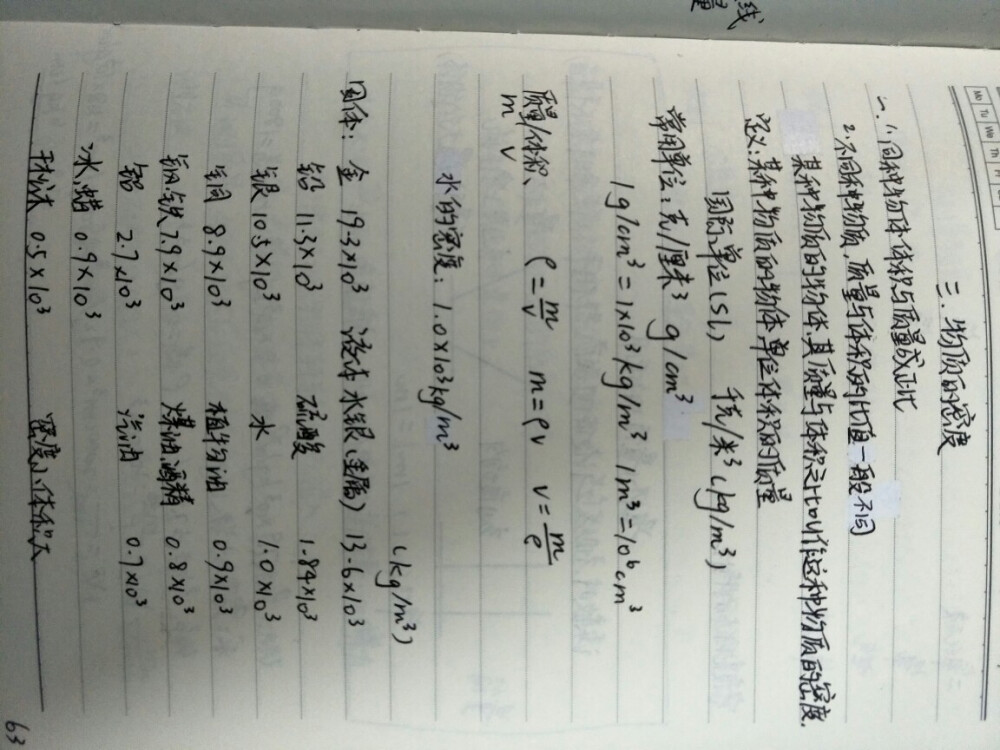 线
量
Mo Tu We Th
三.物质的密度
一、1.同种物体体积与质量成正比
2.不同种物质,质量与体积的比值一般不同
某种物质的物体,其质量与体积之比叫作这种物质的密度.
定义:某种物质的物体单位体积的质量
国际单位(SI) 千克/米³(kg/m³)
常用单位:克/厘米³ g/cm³
1g/cm³=1×10³kg/m³ 1m³=10⁶cm³
质量/体积、 ρ=m/v m=ρv v=m/ρ
m v
水的密度:1.0×10³kg/m³
(kg/m³)
固体: 金 19.3×10³ 液体 水银(金属) 13.6×10³
铅 11.3×10³ 硫酸 1.84×10³
银 10.5×10³ 水 1.0×10³
铜 8.9×10³ 植物油 0.9×10³
钢.铁 7.9×10³ 煤油酒精 0.8×10³
铝 2.7×10³ 汽油 0.7×10³
冰,蜡 0.9×10³
干松木 0.5×10³ 密度小,体积大
63